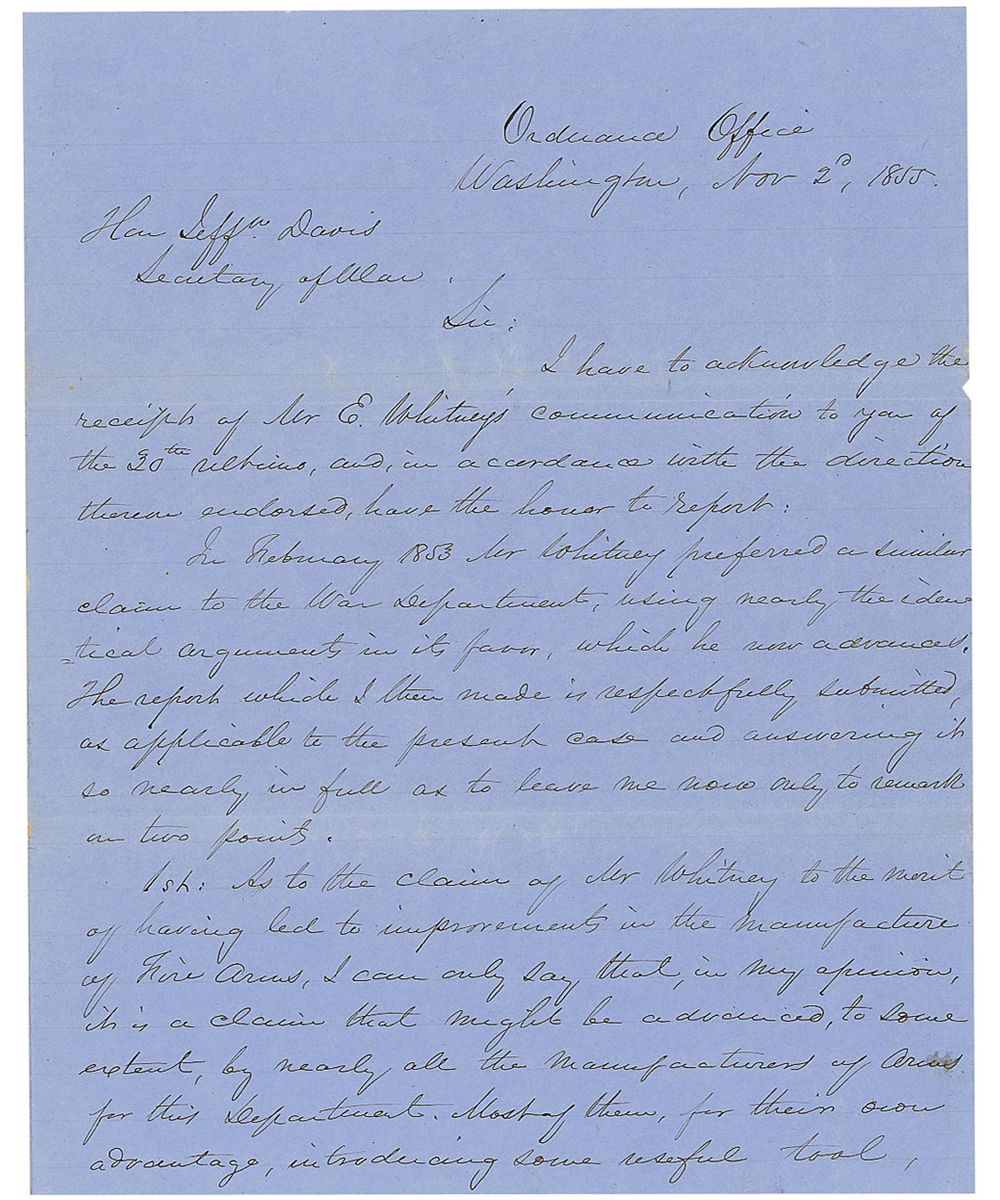 Ordnance Office
Washington, Nov 2d, 1855.
Hon Jeffn. Davis
Secretary of War.
Sir:
I have to acknowledge the
receipt of Mr E. Whitney's communication to you of
the 20th ultimo, and, in accordance with the direction
thereon endorsed, have the honor to report:
In February 1853 Mr Whitney preferred a similar
claim to the War Department, using nearly the iden
=tical arguments in its favor, which he now advances.
The report which I then made is respectfully submitted,
as applicable to the present case and answering it
so nearly in full as to leave me now only to remark
on two points.
1st: As to the claim of Mr Whitney to the merit
of having led to improvements in the manufacture
of Fire Arms, I can only say that, in my opinion,
it is a claim that might be advanced, to some
extent, by nearly all the manufacturers of Arms
for this Department. Most of them, for their own
advantage, introducing some useful tool,